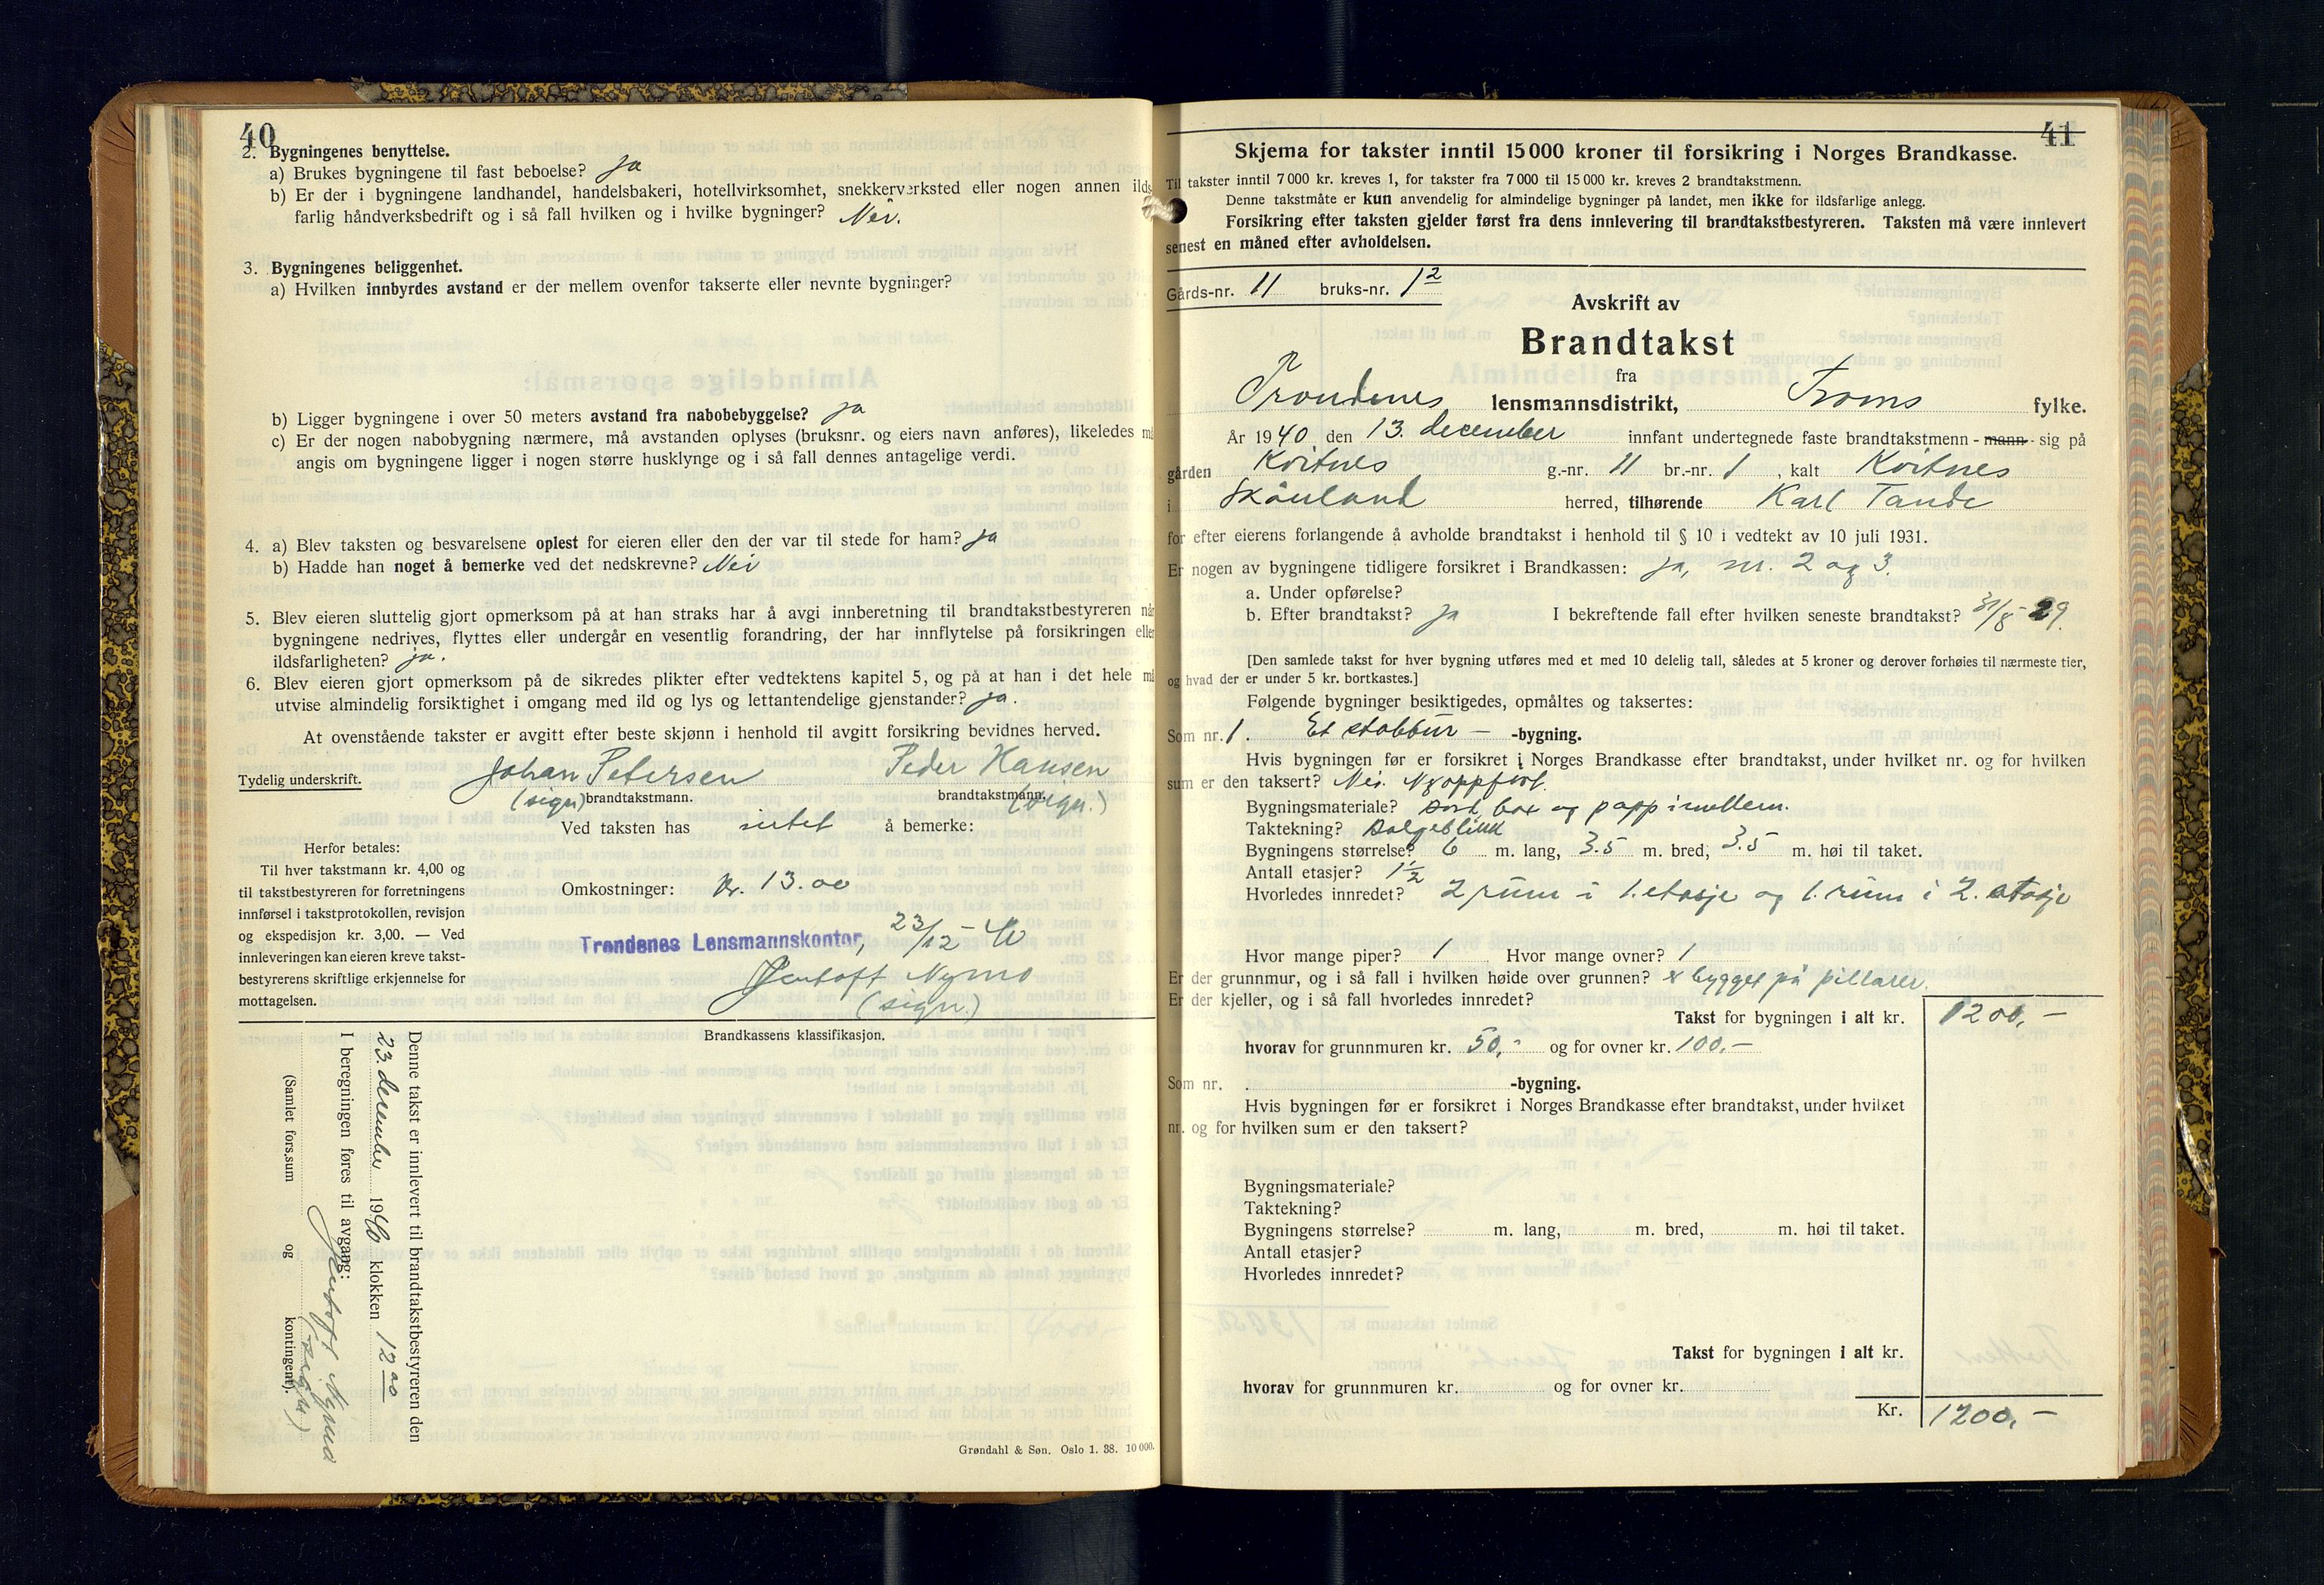 40
2. Bygningenes benyttelse.
a) Brukes bygningene til fast beboelse? ja
b) Er der i bygningene landhandel, handelsbakeri, hotellvirksomhet, snekkerverksted eller nogen annen ilds-
farlig håndverksbedrift og i så fall hvilken og i hvilke bygninger? Nei.
3. Bygningenes beliggenhet.
a) Hvilken innbyrdes avstand er der mellem ovenfor takserte eller nevnte bygninger?
b) Ligger bygningene i over 50 meters avstand fra nabobebyggelse? ja
c) Er der nogen nabobygning nærmere, må avstanden oplyses (bruksnr. og eiers navn anføres), likeledes må
angis om bygningene ligger i nogen større husklynge og i så fall dennes antagelige verdi.
4. a) Blev taksten og besvarelsene oplest for eieren eller den der var til stede for ham? ja
b) Hadde han noget å bemerke ved det nedskrevne? Nei
5. Blev eieren sluttelig gjort opmerksom på at han straks har å avgi innberetning til brandtakstbestyreren når
bygningene nedrives, flyttes eller undergår en vesentlig forandring, der har innflytelse på forsikringen eller
ildsfarligheten? ja.
6. Blev eieren gjort opmerksom på de sikredes plikter efter vedtektens kapitel 5, og på at han i det hele må
utvise almindelig forsiktighet i omgang med ild og lys og lettantendelige gjenstander? ja.
At ovenstående takster er avgitt efter beste skjønn i henhold til avgitt forsikring bevidnes herved.
Tydelig underskrift. Johan Petersen Peder Hansen
(sign) brandtakstmann. brandtakstmann. (sign.)
Ved taksten has intet å bemerke:
Herfor betales:
Til hver takstmann kr. 4,00 og
til takstbestyreren for forretningens
innførsel i takstprotokollen, revisjon
og ekspedisjon kr. 3,00. — Ved
innleveringen kan eieren kreve takst-
bestyrerens skriftlige erkjennelse for
mottagelsen.
Omkostninger: kr. 13.00
Trondenes Lensmannskontor, 23/12-40
Jentoft Nymo
(sign.)
Brandkassens klassifikasjon.
Denne takst er innlevert til brandtakstbestyreren den
23 december 1940 klokken 12 00
I beregningen føres til avgang:
Jentoft Nymo
(sign)
(Samlet fors.sum og kontingent).
Grøndahl & Søn. Oslo 1. 38. 10 000.
41
Skjema for takster inntil 15 000 kroner til forsikring i Norges Brandkasse.
Til takster inntil 7 000 kr. kreves 1, for takster fra 7 000 til 15 000 kr. kreves 2 brandtakstmenn.
Denne takstmåte er kun anvendelig for almindelige bygninger på landet, men ikke for ildsfarlige anlegg.
Forsikring efter taksten gjelder først fra dens innlevering til brandtakstbestyreren. Taksten må være innlevert
senest en måned efter avholdelsen.
Gårds-nr. 11 bruks-nr. 12
Avskrift av
Brandtakst
fra
Trondenes lensmannsdistrikt, Troms fylke.
År 1940, den 13. december innfant undertegnede faste brandtakstmenn - mann - sig på
gården Kvitnes g.-nr. 11 br.-nr. 1, kalt Kvitnes
i Skånland herred, tilhørende Karl Tande
for efter eierens forlangende å avholde brandtakst i henhold til § 10 i vedtekt av 10 juli 1931.
Er nogen av bygningene tidligere forsikret i Brandkassen: ja, nr. 2 og 3.
a. Under opførelse?
b. Efter brandtakst? ja I bekreftende fall efter hvilken seneste brandtakst? 31/8-29.
[Den samlede takst for hver bygning utføres med et med 10 delelig tall, således at 5 kroner og derover forhøies til nærmeste tier,
og hvad der er under 5 kr. bortkastes.]
Følgende bygninger besiktigedes, opmåltes og taksertes:
Som nr. 1. Et stabbur — -bygning.
Hvis bygningen før er forsikret i Norges Brandkasse efter brandtakst, under hvilket nr. og for hvilken
sum er den taksert? Nei. Nyoppført.
Bygningsmateriale? og papp imellem.
Taktekning? Bølgeblikk
Bygningens størrelse? 6 m. lang, 3.5 m. bred, 3.5 m. høi til taket.
Antall etasjer? 1½
Hvorledes innredet? 2 rum i 1. etasje og 1. rum i 2. etasje
Hvor mange piper? 1 Hvor mange ovner? 1
Er der grunnmur, og i så fall i hvilken høide over grunnen? bygget på pillarer.
Er der kjeller, og i så fall hvorledes innredet?
Takst for bygningen i alt kr. 1200,—
hvorav for grunnmuren kr. 50,- og for ovner kr. 100.—
Som nr. . -bygning.
Hvis bygningen før er forsikret i Norges Brandkasse efter brandtakst, under hvilket
nr. og for hvilken sum er den taksert?
Bygningsmateriale?
Taktekning?
Bygningens størrelse? m. lang, m. bred, m. høi til taket.
Antall etasjer?
Hvorledes innredet?
Takst for bygningen i alt kr.
hvorav for grunnmuren kr. og for ovner kr.
Kr. 1200,—